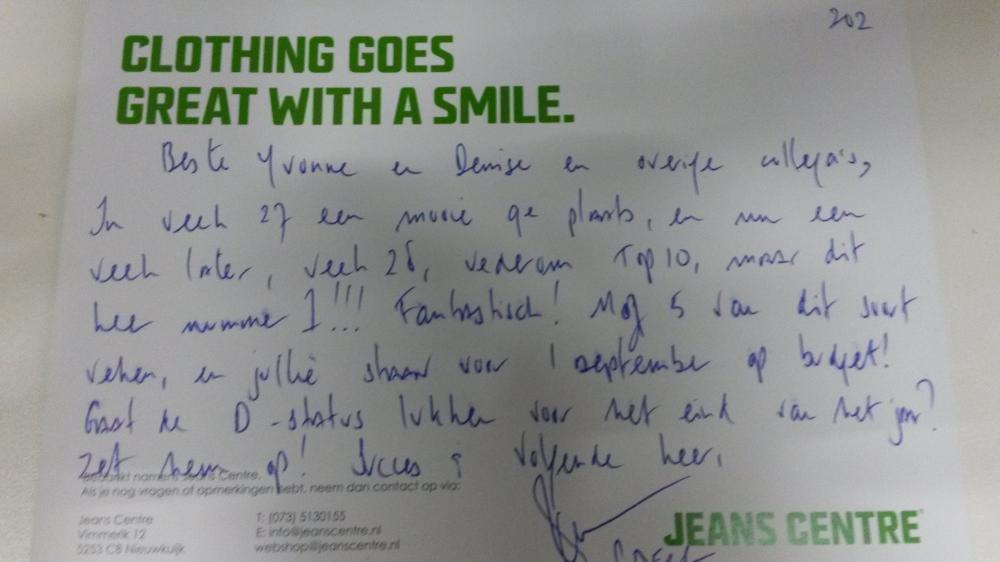 202
CLOTHING GOES
GREAT WITH A SMILE.
Beste Yvonne en Denise en overige collega's,
In week 27 een mooie 9e plaats, en nu een
week later, week 28, wederom Top 10, maar dit
keer nummer 1!!! Fantastisch! Nog 5 van dit soort
weken, en jullie staan voor 1 september op budget!
Gaat de D-status lukken voor het eind van het jaar?
Zet hem op! Succes volgende keer,
Bedankt namens Jeans Centre.
Als je nog vragen of opmerkingen hebt, neem dan contact op via:
Jeans Centre T: (073) 5130155
Vimmerik 12 E: info@jeanscentre.nl
5253 CB Nieuwkuijk webshop@jeanscentre.nl
JEANS CENTRE